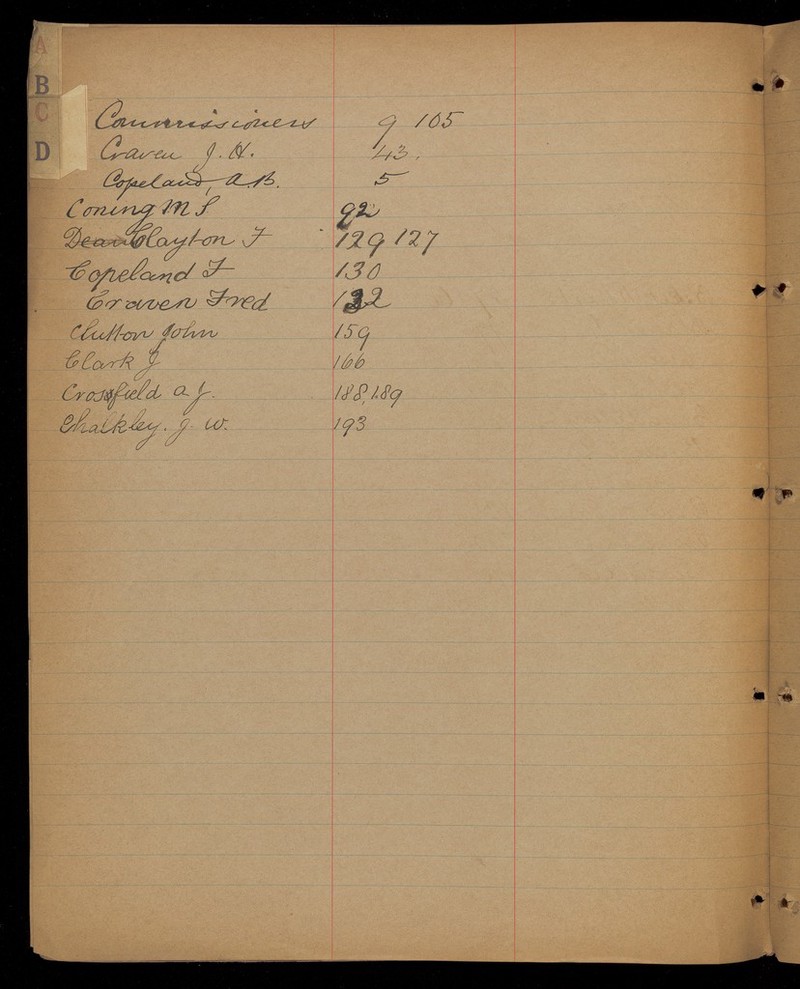 A
B
C
D
Commissioners 9 105
Craven J. H. 43.
Copeland, A.B. 5
Coning M S 92
Dean Clayton F 129 127
Copeland F 130
Craven Fred 132
Clutton John 159
Clark J 166
Crossfield a. J. 188, 189
Chalkley. J. W. 193